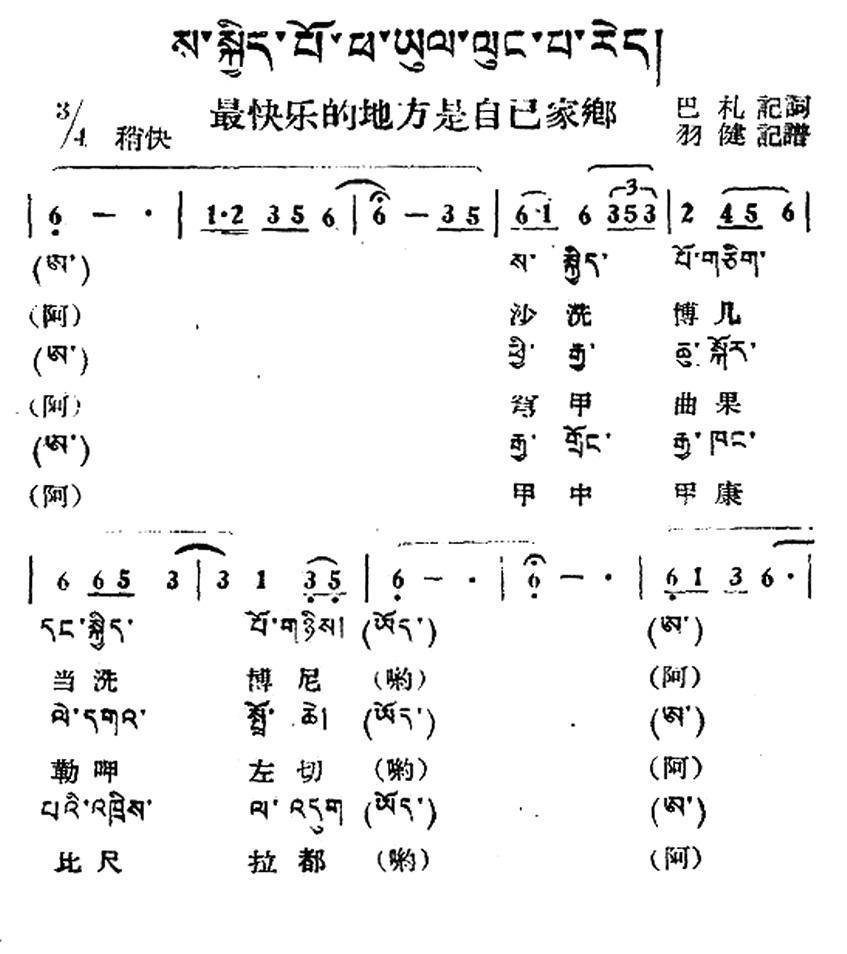 ས་སྐྱིད་པོ་ཕ་ཡུལ་ལུང་པ་རེད།
最快乐的地方是自已家鄉
3/4 稍快
巴札記詞
羽健記譜
| 6 — · | 1·2 35 6 | 6 — 35 | 6·1 6 353 | 2 45 6 |
(ཨ་) ས་ སྐྱིད་ པོ་གཅིག་
(阿) 沙洗 博几
(ཨ་) ཕྱི་ རྒྱ་ ཆུ་ སྐོར་
(阿) 穹甲 曲果
(ཨ་) རྒྱ་ གྲོང་ རྒྱ་ ཁང་
(阿) 甲中 甲康
| 6 65 3 | 3 1 35 | 6 — · | 6 — · | 61 3 6· |
དང་སྐྱིད་ པོ་གཉིས། (ཨོད་) (ཨ་)
当洗 博尼 (喲) (阿)
ལེ་དགའ་ ཆེ། (ཨོད་) (ཨ་)
勒呷 左切 (喲) (阿)
པའི་འཁྲིས་ ལ་ འདུག (ཨོད་) (ཨ་)
比尺 拉都 (喲) (阿)